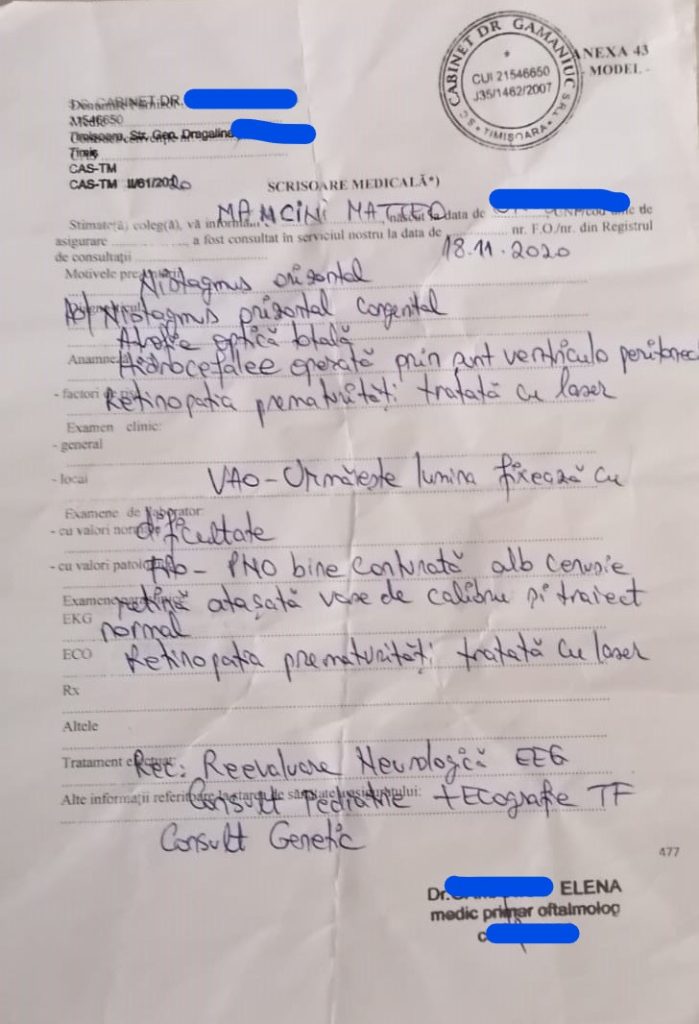 CABINET DR. GAMANIUC SRL
SC
* TIMIȘOARA *
CUI 21546650
J35/1462/2007
ANEXA 43
- MODEL -
SC CABINET DR.
21546650
Timisoara, Str. Gen. Dragalina
Timis
CAS-TM
CAS-TM II/61/2020
SCRISOARE MEDICALĂ*)
Stimate(ă) coleg(ă), vă informăm MANCINI MATTEO născut la data de CNP/cod unic de
asigurare a fost consultat în serviciul nostru la data de 18.11.2020 nr. F.O./nr. din Registrul
de consultații
Motivele Nistagmus orizontal
Nistagmus orizontal congenital
Atrofie optică totală
Hidrocefalee operată prin șunt ventriculo peritoneal
- factori Retinopatia prematurități tratată cu laser
Examen clinic:
- general
- local VAO - Urmărește lumina fixează cu
Examene de laborator:
- cu valori normale dificultate
- cu valori patologice - PNO bine conturată alb cenușie
Examene retină atașată vase de calibru și traiect
EKG normal
ECO Retinopatia prematurități tratată cu laser
Rx
Altele
Tratament efectuat: Rec: Reevaluare Neurologică EEG
Alte informații referitoare la starea de sănătate a asiguratului: Consult Pediatrie + Ecografie TF
Consult Genetic
477
Dr. ELENA
medic primar oftalmolog
c